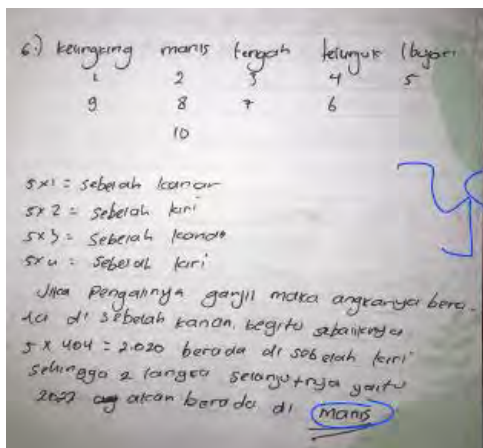 6.) kelingking manis tengah telunjuk Ibujari
1 2 3 4 5
9 8 7 6
10
5x1 = sebelah kanan
5x2 = sebelah kiri
5x3 = sebelah kanan
5x4 = sebelah kiri
Jika pengalinya ganjil maka angkanya bera-
da di sebelah kanan, begitu sebaliknya
5 x 404 = 2.020 berada di sebelah kiri
sehingga 2 langka selanjutnya yaitu
2022 akan berada di manis